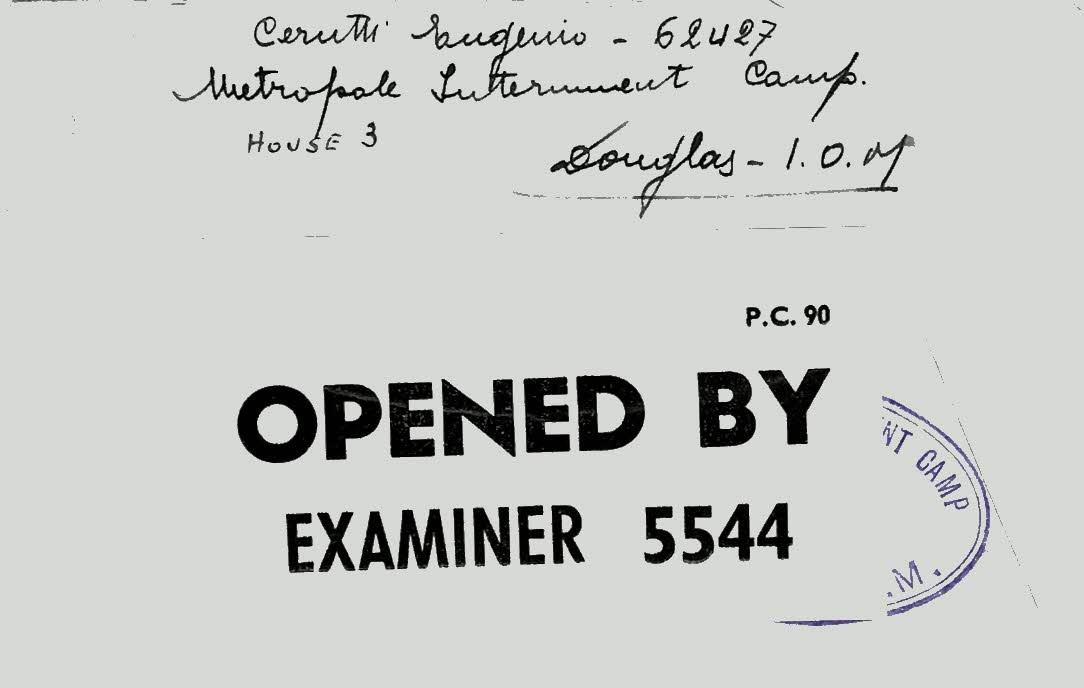 Cerutti Eugenio - 62427
Metropole Internment Camp.
HOUSE 3
Douglas - I.O.M
P.C. 90
OPENED BY
EXAMINER 5544
NT CAMP
.M.